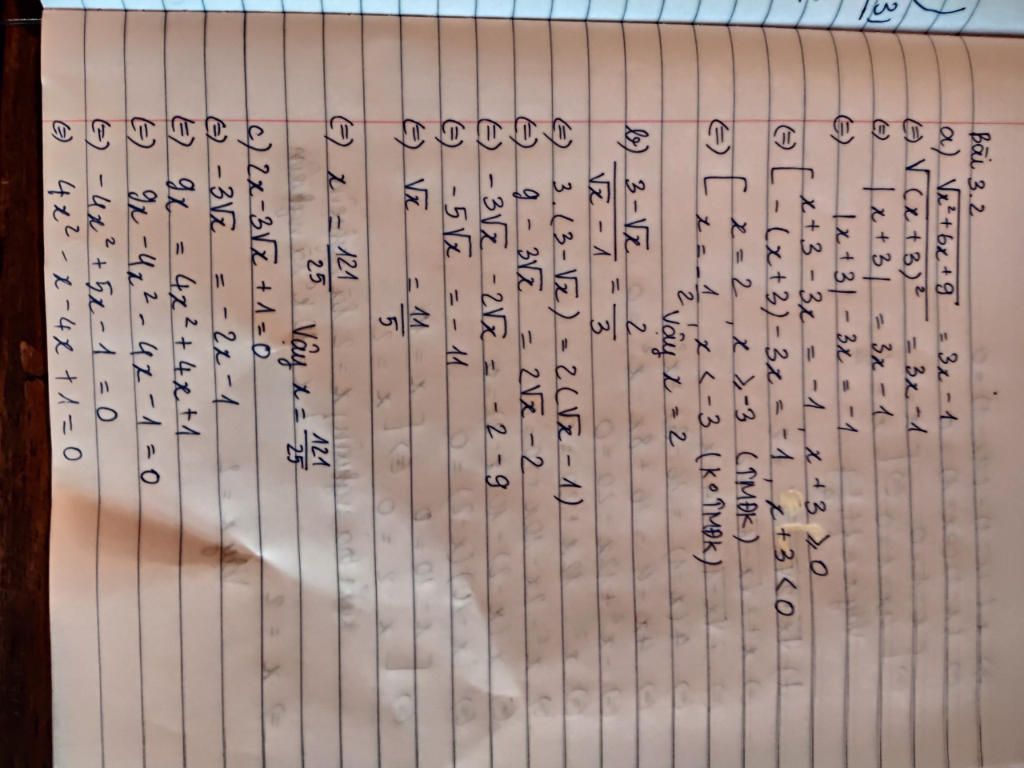 3)
Bài 3.2
a) √x²+6x+9 = 3x-1
(=) √(x+3)² = 3x-1
(=) |x+3| = 3x-1
(=) |x+3| - 3x = -1
(=) [ x+3-3x = -1, x+3 ⩾ 0
-(x+3)-3x = -1, x+3 < 0
(=) [ x = 2, x ⩾ -3 (TMĐK)
x = -1/2, x < -3 (KoTMĐK)
Vậy x = 2
b) 3-√x / √x-1 = 2/3
(=) 3.(3-√x) = 2(√x-1)
(=) 9-3√x = 2√x-2
(=) -3√x-2√x = -2-9
(=) -5√x = -11
(=) √x = 11/5
(=) x = 121/25 Vậy x = 121/25
c) 2x-3√x+1=0
(=) -3√x = -2x-1
(=) 9x = 4x²+4x+1
(=) 9x-4x²-4x-1=0
(=) -4x²+5x-1=0
(=) 4x²-x-4x+1=0